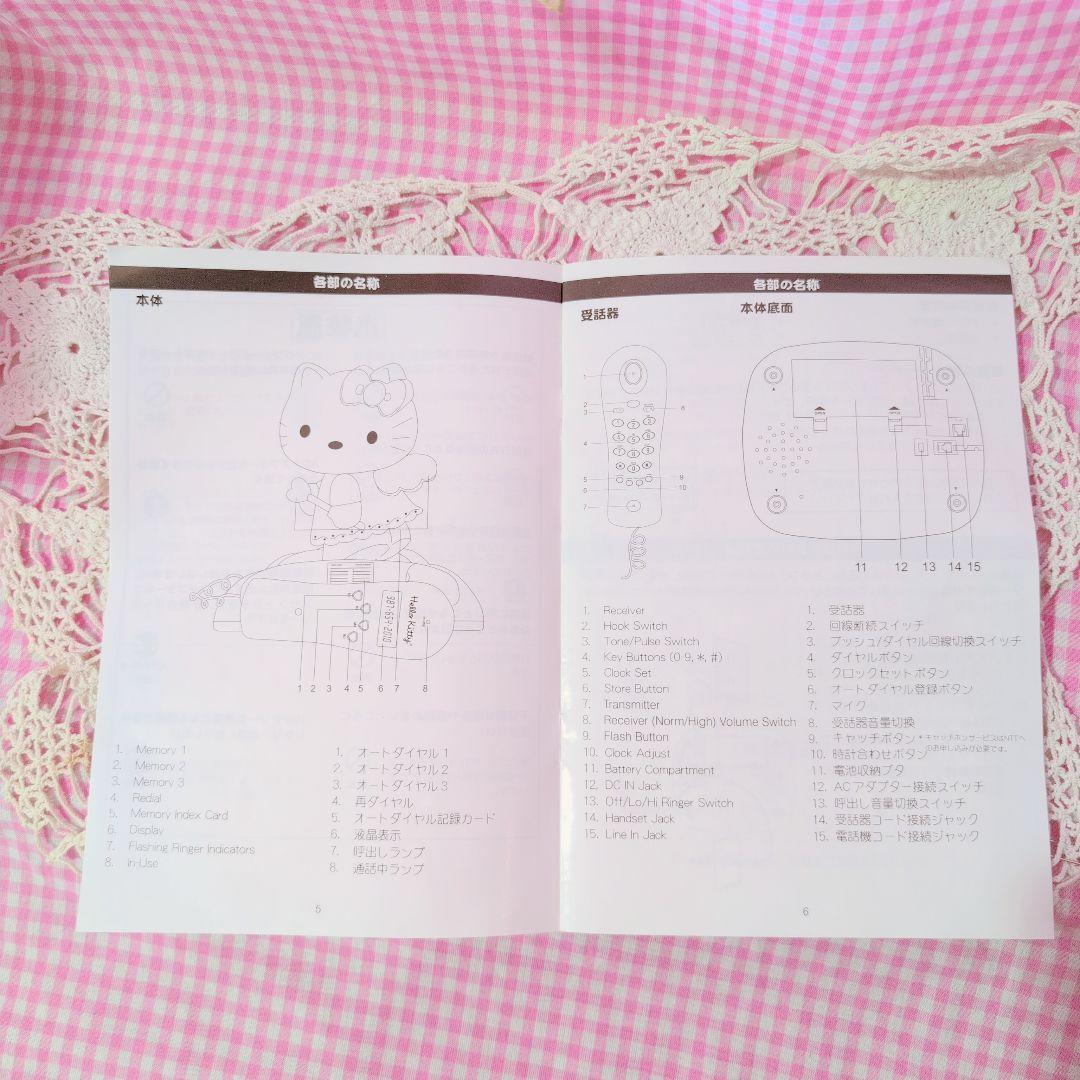 各部の名称
本体
Hello Kitty
987-654-2010
1 2 3 4 5 6 7 8
1. Memory 1
2. Memory 2
3. Memory 3
4. Redial
5. Memory Index Card
6. Display
7. Flashing Ringer Indicators
8. In-Use
1. オートダイヤル 1
2. オートダイヤル 2
3. オートダイヤル 3
4. 再ダイヤル
5. オートダイヤル記録カード
6. 液晶表示
7. 呼出しランプ
8. 通話中ランプ
5
各部の名称
受話器
本体底面
1
2
3
4
5
6
7
8
9
10
OPEN
OPEN
11 12 13 14 15
1. Receiver
2. Hook Switch
3. Tone/Pulse Switch
4. Key Buttons (0-9, *, #)
5. Clock Set
6. Store Button
7. Transmitter
8. Receiver (Norm/High) Volume Switch
9. Flash Button
10. Clock Adjust
11. Battery Compartment
12. DC IN Jack
13. Off/Lo/Hi Ringer Switch
14. Handset Jack
15. Line In Jack
1. 受話器
2. 回線断続スイッチ
3. プッシュ/ダイヤル回線切換スイッチ
4. ダイヤルボタン
5. クロックセットボタン
6. オートダイヤル登録ボタン
7. マイク
8. 受話器音量切換
9. キャッチボタン *キャッチホンサービスはNTTへのお申し込みが必要です。
10. 時計合わせボタン
11. 電池収納ブタ
12. ACアダプター接続スイッチ
13. 呼出し音量切換スイッチ
14. 受話器コード接続ジャック
15. 電話機コード接続ジャック
6